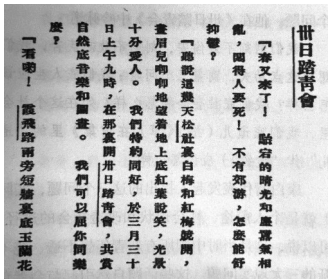 卅日踏青會
「春又來了！ 的 如 驚風和
亂， 人也 死，不去郊游，怎麼舒
抑鬱？
「聽說這幾天松社裏白梅和紅梅盛開，
畫眉兒唧唧地望着地上底紅葉說笑，光景
十分愛人。 我們特約同好，於三月三十
日上午九時，在那裏開卅日踏青會，共賞
自然底音樂和圖畫。 我們可以屆你同樂
麼？
「看喲！ 霞飛路兩旁短籬裏底玉蘭花